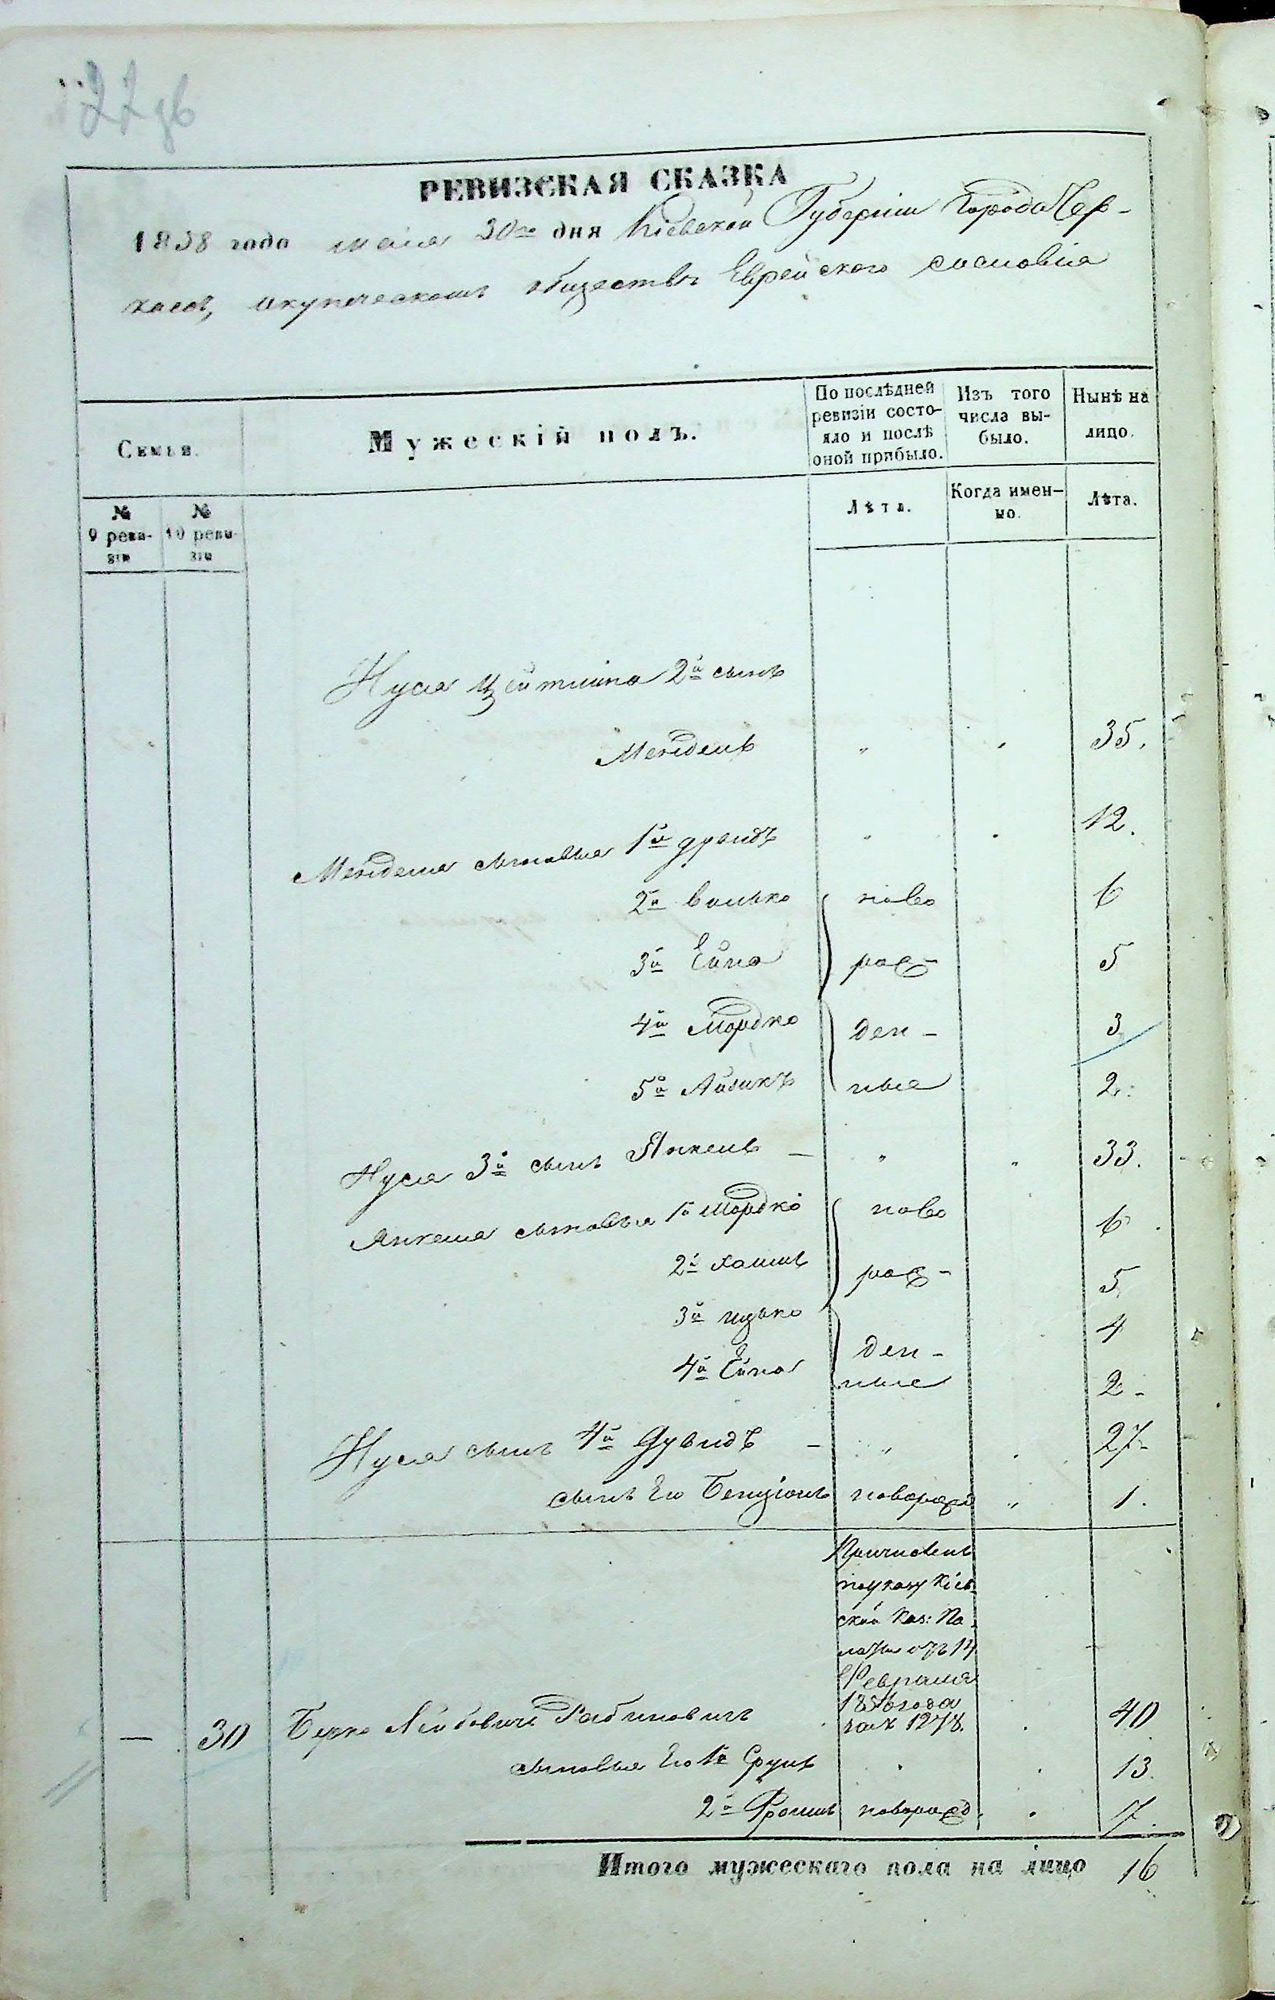 22 дв
РЕВИЗСКАЯ СКАЗКА
1858 года мая 30го дня Кіевской Губерніи Города Чер-
касъ, о купеческомъ обществѣ Еврейского сословія
Семья.
Мужескій полъ.
По послѣдней ревизіи состо-яло и послѣ оной прибыло.
Изъ того числа вы-было.
Нынѣ на лицо.
№ 9 реви-зіи
№ 10 реви-зіи
Лѣта.
Когда имен-но.
Лѣта.
Нуся Цейтлина 2й сынъ
Мендель " " 35.
Менделя сыновья 1й Дувидъ " " 12.
2й Волько ново 6
3й Ейна рож- 5
4й Мордко ден- 3
5й Айзикъ ные 2.
Нуся 3й сынъ Янкель — " " 33.
Янкеля сыновья 1й Мордко ново 6
2й Хаимъ рож- 5
3й Ицько ден- 4
4й Ейна ные 2-
Нуся сынъ 4й Дувидъ — " " 27-
сынъ Его Бенціонъ новорожд " 1.
Причисленъ
по указу Кіев-
ской Каз: Па-
латы отъ 14
Февраля
1856 года
за № 1278.
— 30 Берко Лейбовичъ Рабиновичъ 40
сыновья Его 1й Срулъ " " 13.
2й Фроимъ новорожд. " 7.
Итого мужескаго пола на лицо 16